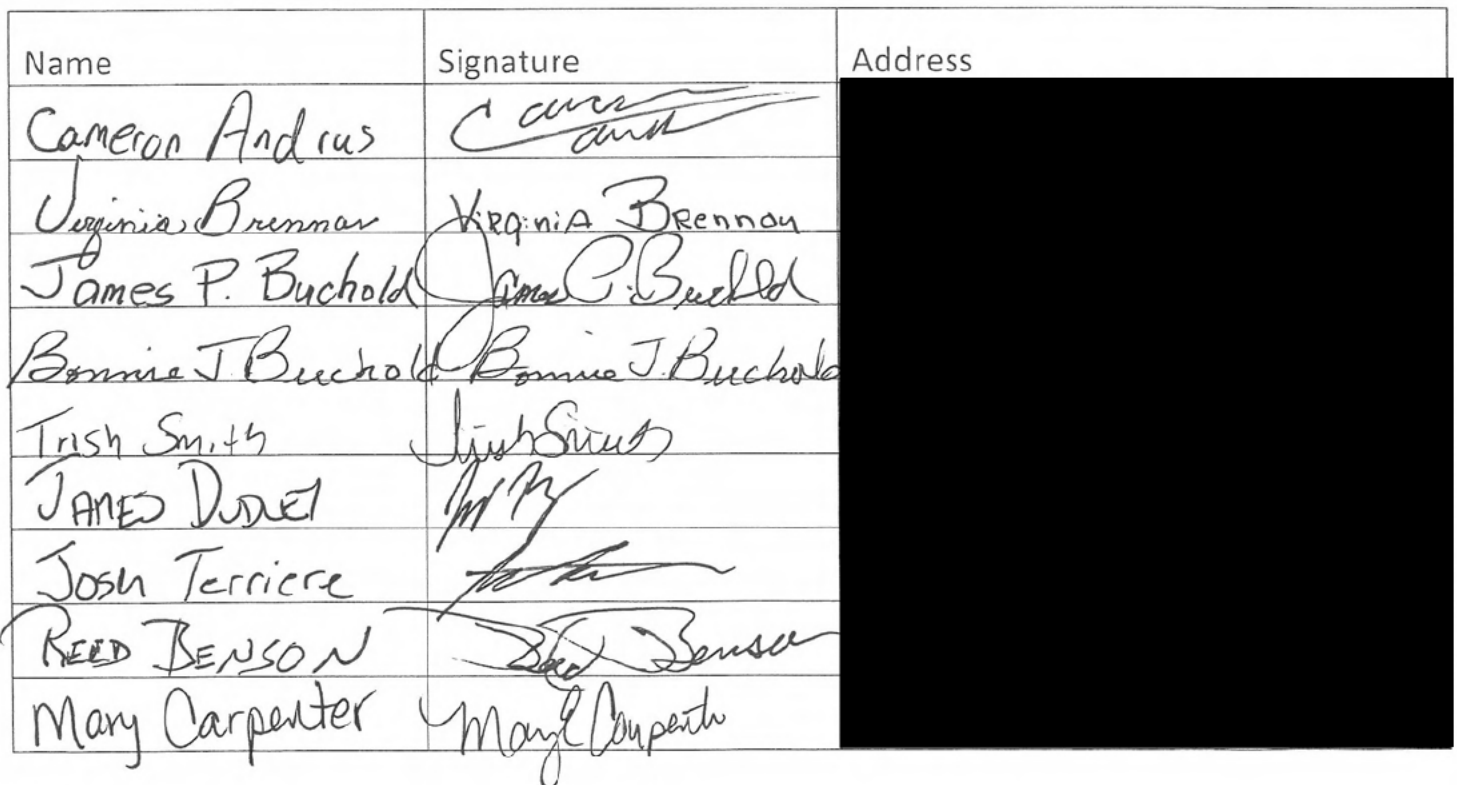 Name Signature Address
Cameron Andrus
Virginia Brennan Virginia Brennan
James P. Buchold James P. Buchold
Bonnie J Buchold Bonnie J. Buchold
Trish Smith Trish Smith
James
Josh Terriere
REED BENSON Reed Benson
Mary Carpenter Mary E Carpenter